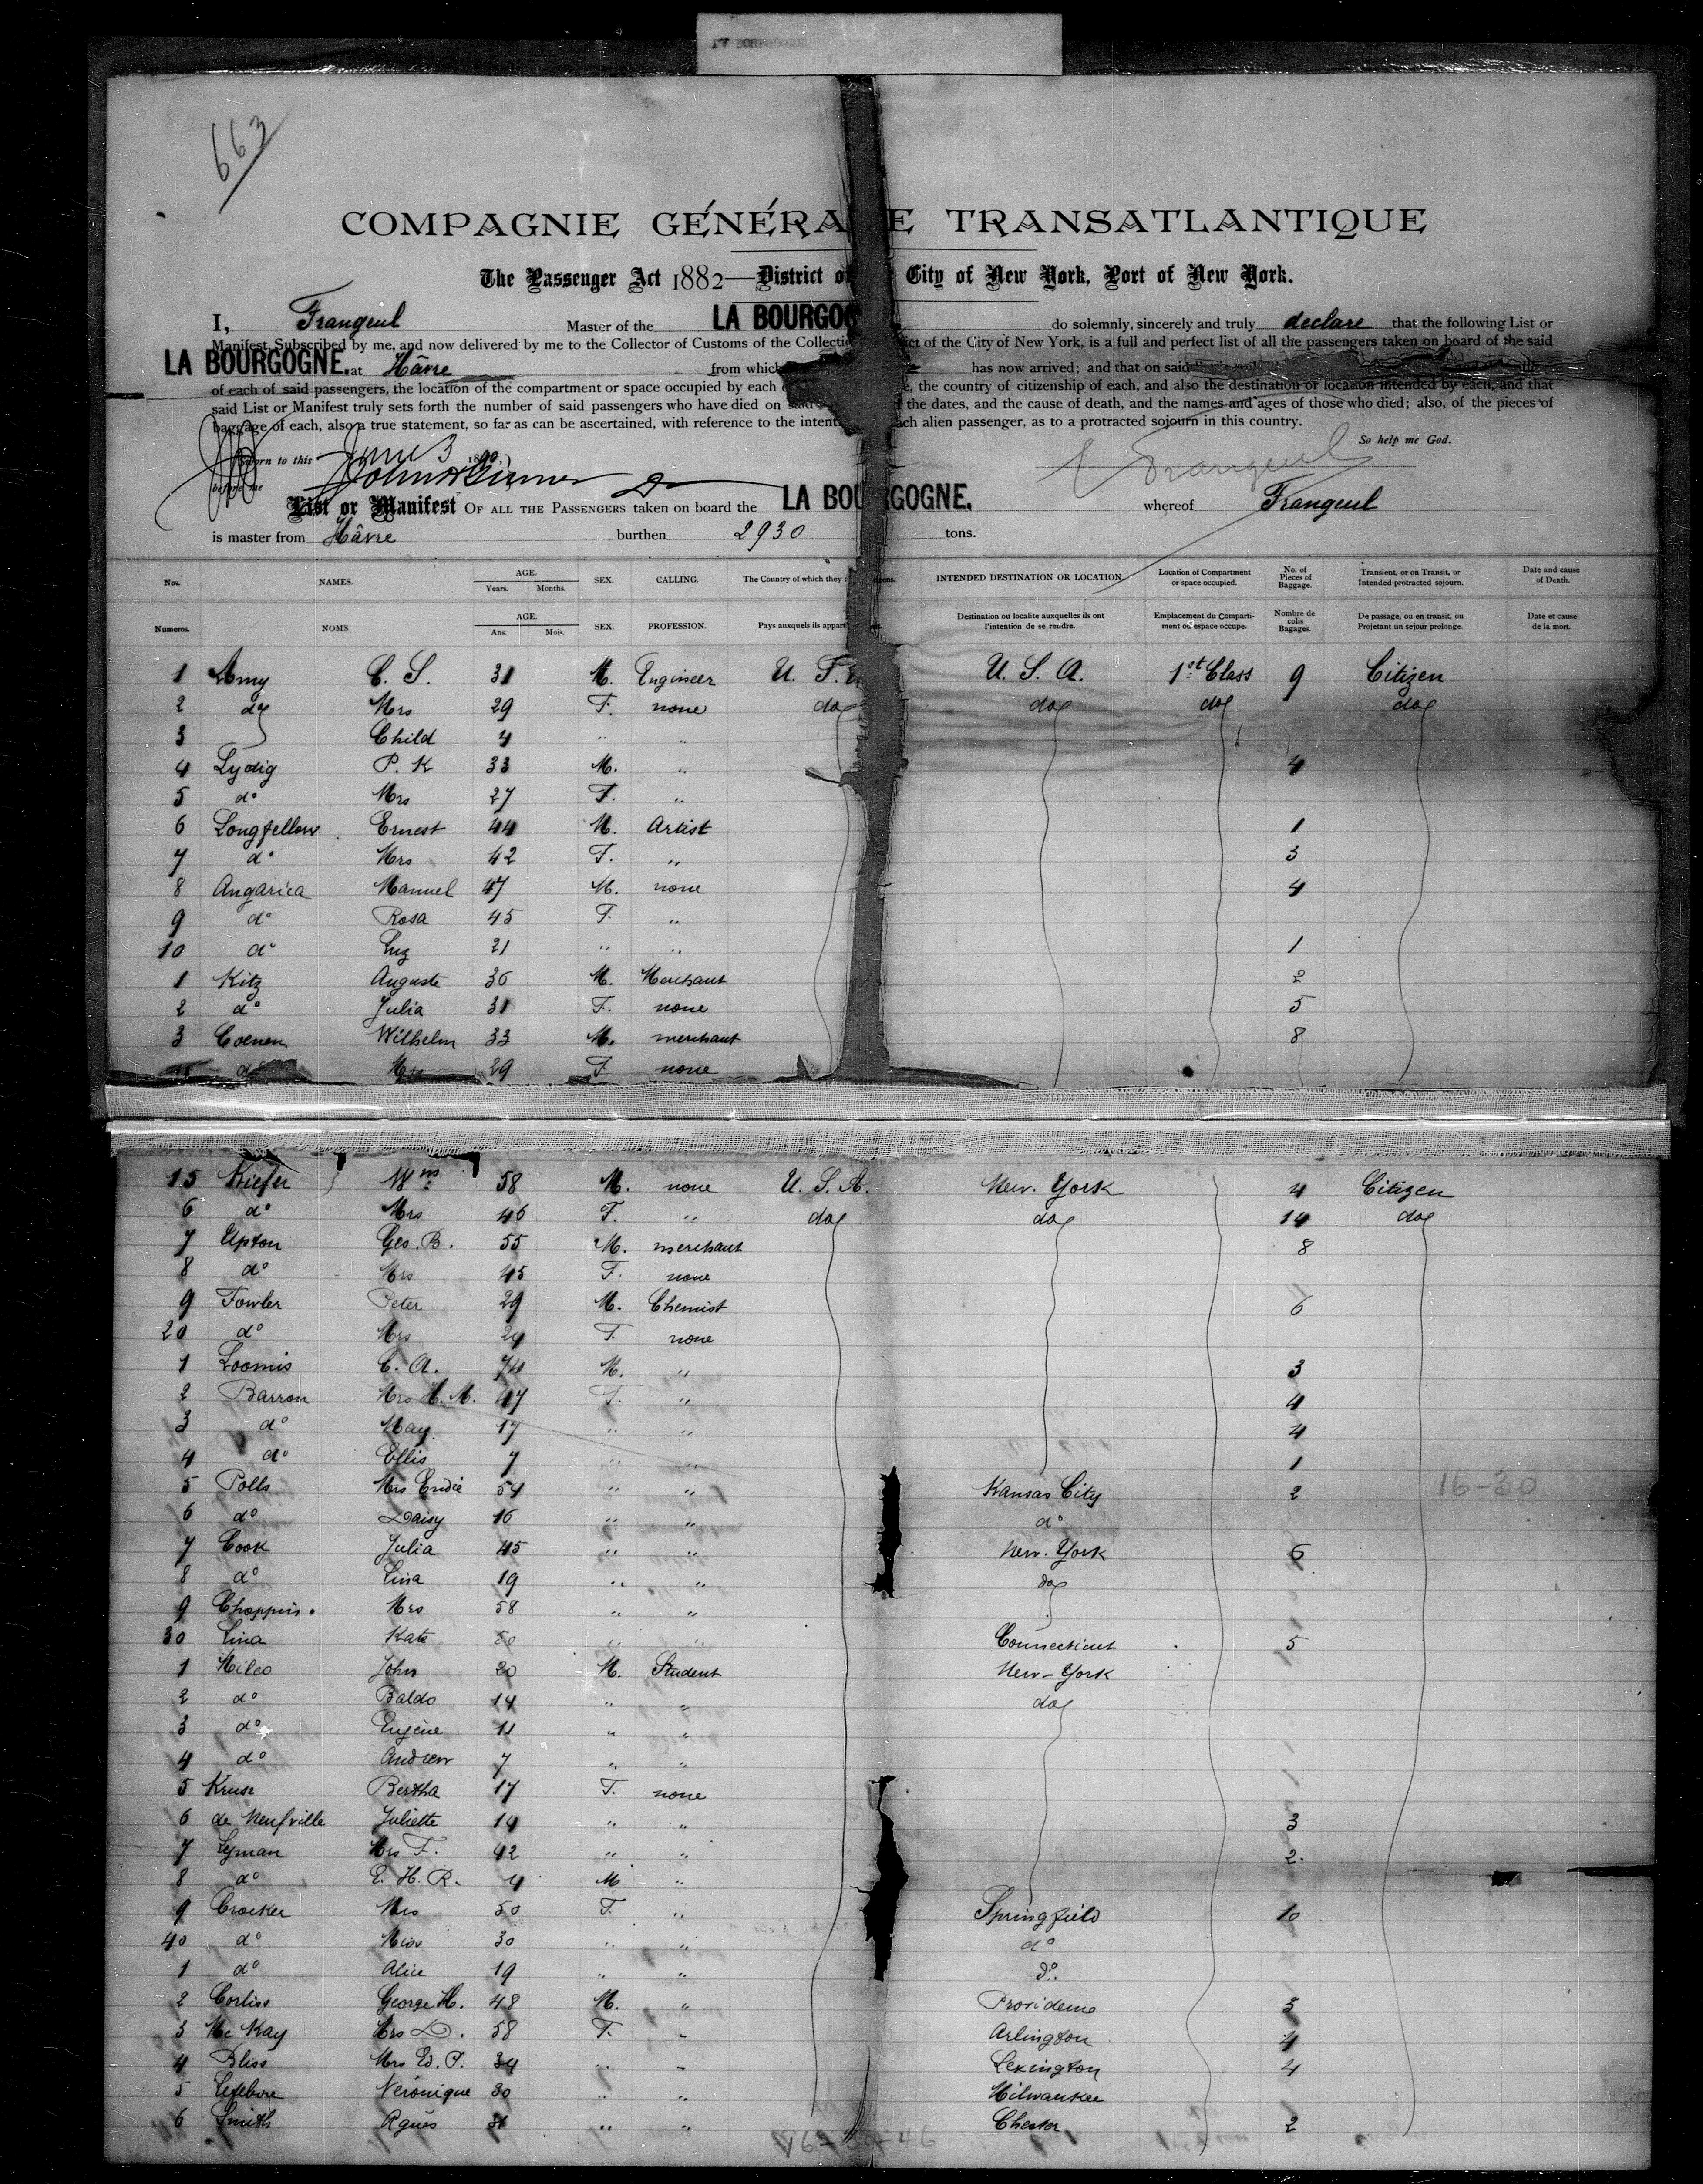 663
COMPAGNIE GÉNÉRA E TRANSATLANTIQUE
The Passenger Act 1882—District o City of New York, Port of New York.
I, Frangeul Master of the LA BOURGOG do solemnly, sincerely and truly declare that the following List or
Manifest, Subscribed by me, and now delivered by me to the Collector of Customs of the Collectio ict of the City of New York, is a full and perfect list of all the passengers taken on board of the said
LA BOURGOGNE. at Hâvre from which has now arrived; and that on said
of each of said passengers, the location of the compartment or space occupied by each the country of citizenship of each, and also the destination or location intended by each, and that
said List or Manifest truly sets forth the number of said passengers who have died on said the dates, and the cause of death, and the names and ages of those who died; also, of the pieces of
baggage of each, also a true statement, so far as can be ascertained, with reference to the intent ach alien passenger, as to a protracted sojourn in this country.
So help me God.
Sworn to this June 3 1890
before me
Frangeul
List or Manifest OF ALL THE PASSENGERS taken on board the LA BOURGOGNE. whereof Frangeul
is master from Hâvre burthen 2930 tons.
Nos. NAMES. AGE. Years. Months. SEX. CALLING. The Country of which they INTENDED DESTINATION OR LOCATION. Location of Compartment or space occupied. No. of Pieces of Baggage. Transient, or on Transit, or Intended protracted sojourn. Date and cause of Death.
Numeros. NOMS AGE. Ans. Mois. SEX. PROFESSION. Pays auxquels ils appart Destination ou localite auxquelles ils ont l'intention de se rendre. Emplacement du Compartiment ou espace occupe. Nombre de colis Bagages. De passage, ou en transit, ou Projetant un sejour prolonge. Date et cause de la mort.
1 Amy C. S. 31 M. Engineer U. S. U. S. A. 1st Class 9 Citizen
2 do Mrs 29 F. none do do do do
3 Child 4 " "
4 Lydig P. K 33 M. " 4
5 do Mrs 27 F. "
6 Longfellow Ernest 44 M. Artist 1
7 do Mrs 42 F. " 3
8 Angarica Manuel 47 M. none 4
9 do Rosa 45 F. "
10 do Luz 21 " " 1
1 Kitz Auguste 36 M. Merchant 2
2 do Julia 31 F. none 5
3 Coenen Wilhelm 33 M. merchant 8
do Mrs 29 F. none
15 Kiefer Wm 58 M. none U. S. A. New. York 4 Citizen
6 do Mrs 46 F. " do do 14 do
7 Upton Geo. B. 55 M. merchant 8
8 do Mrs 45 F. none
9 Fowler Peter 29 M. Chemist 6
20 do Mrs 24 F. none
1 Loomis C. A. 74 M. " 3
2 Barron Mrs H. M. 47 F. " 4
3 do May 17 " " 4
4 do Ellis 7 " " 1
5 Potts Mrs 54 " " Kansas City 2 16-30
6 do Daisy 16 " " do
7 Cook Julia 45 " " New. York 6
8 do Lina 19 " " do
9 Choppin Mrs 58 " "
30 Lina Kate 50 " " Connecticut 5
1 Milco John 20 M. Student New-York
2 do Baldo 14 " " do
3 do Eugène 11 " "
4 do Andrew 7 " "
5 Kruse Bertha 17 F. none
6 de Neufville Juliette 19 " " 3
7 Lyman Mrs F. 42 " " 2.
8 do E. H. R. 4 M "
9 Crocker Mrs 50 F. " Springfield 10
40 do Miss 30 " " do
1 do Alice 19 " " do
2 Corliss George H. 48 M. " Providence 3
3 Mc Kay Mrs D. 58 F. " Arlington 4
4 Bliss Mrs Ed. P. 34 " " Lexington 4
5 Lefebvre Véronique 30 " " Milwaukee
6 Smith Agnès 31 " " Chester 2